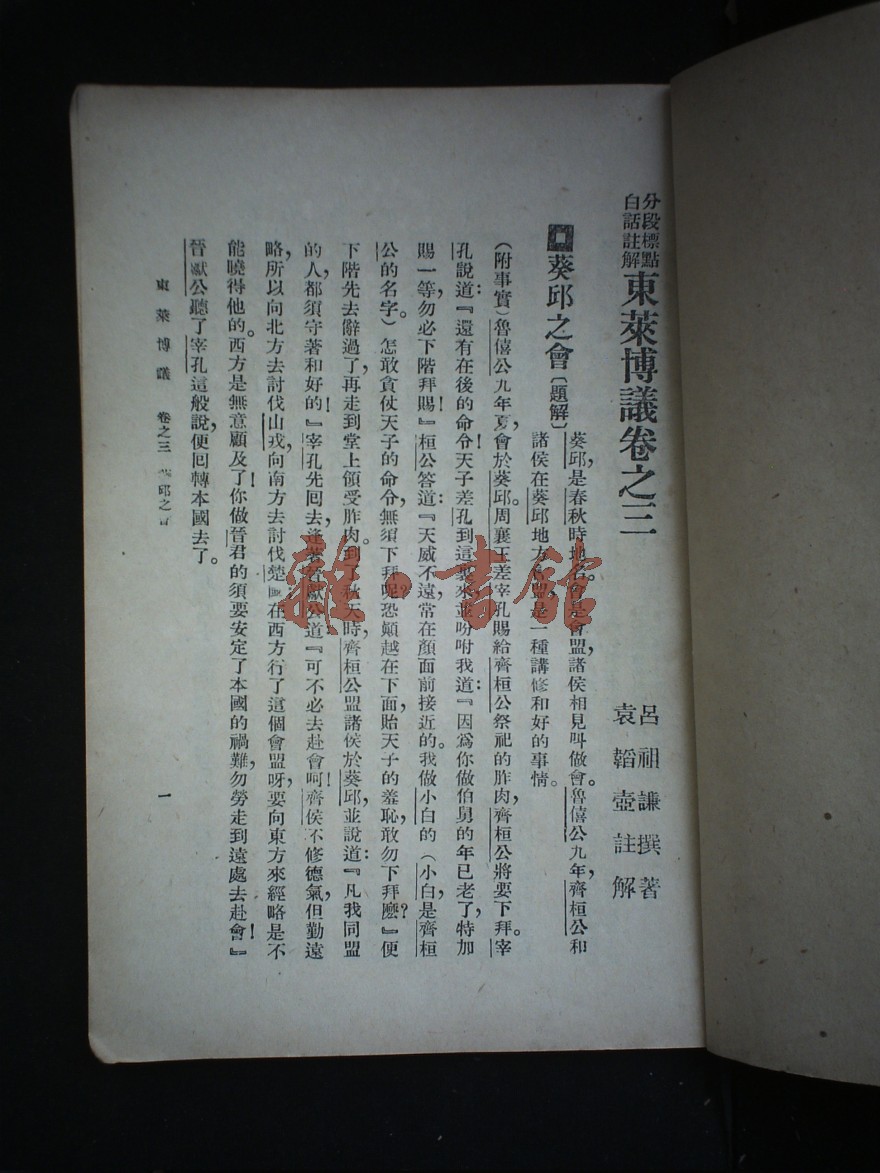 分段標點
白話註解
東萊博議卷之三
呂祖謙撰著
袁韜壺註解
葵邱之會〔題解〕
葵邱,是春秋時地名。會是會盟,諸侯相見叫做會。魯僖公九年,齊桓公和
諸侯在葵邱地方會盟,是一種講修和好的事情。
(附事實)魯僖公九年夏,會於葵邱。周襄王差宰孔賜給齊桓公祭祀的胙肉,齊桓公將要下拜。宰
孔說道:『還有在後的命令!天子差孔到這裏來並吩咐我道:『因爲你做伯舅的年已老了,特加
賜一等,勿必下階拜賜!』桓公答道:『天威不遠,常在顏面前接近的。我做小白的(小白是齊桓
公的名字。)怎敢貪仗天子的命令,無須下拜呢?恐顚越在下面,貽天子的羞恥,敢勿下拜麽?』便
下階先去辭過了,再走到堂上領受胙肉。到了秋天時,齊桓公盟諸侯於葵邱,並說道:『凡我同盟
的人,都須守著和好的!』宰孔先囘去,逢著晉獻公道『可不必去赴會呵!齊侯不修德氣,但勤遠
略,所以向北方去討伐山戎,向南方去討伐楚國在西方行了這個會盟呀,要向東方來經略是不
能曉得他的。西方是無意顧及了!你做晉君的須要安定了本國的禍難,勿勞走到遠處去赴會!』
晉獻公聽了宰孔這般說,便囘轉本國去了。
東萊博議 卷之三 葵邱之會
一
雜·書館